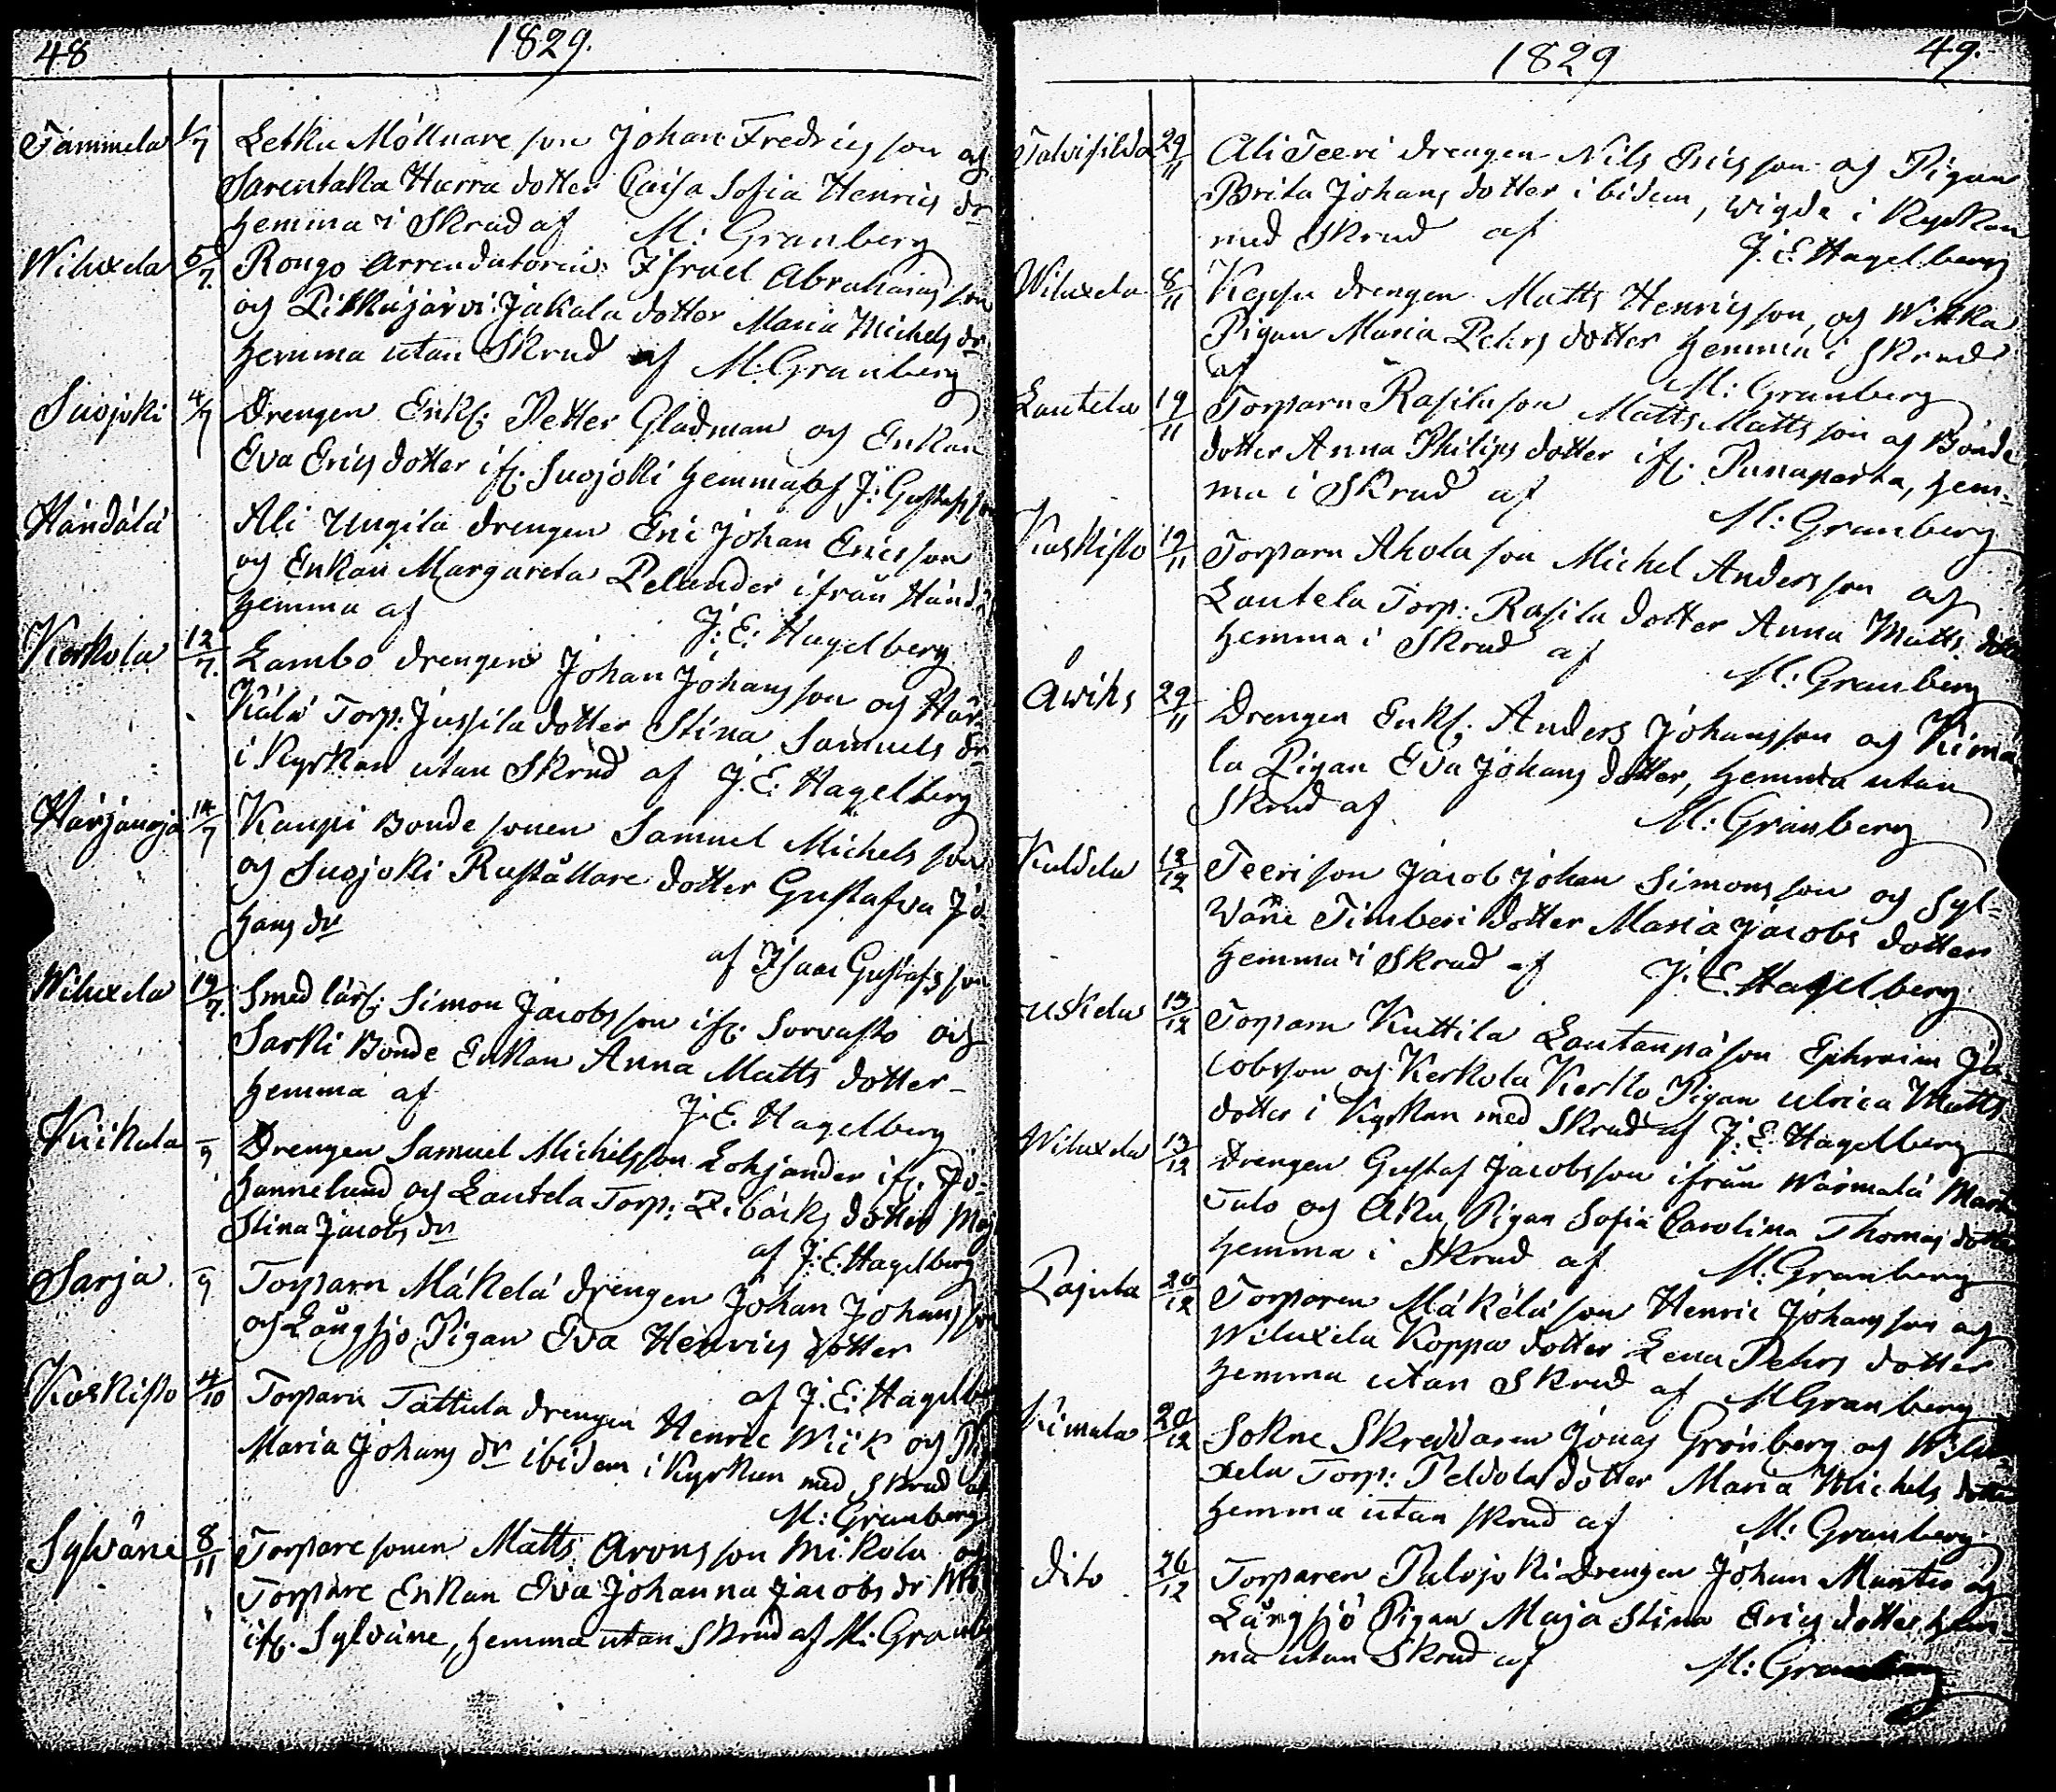 48
1829.
Tammela 1/7 Letku Möllnare son Johan Fredrics son og
Sarentaka Hurra dotter Caisa Sofia Henrics dr
hemma i Skrud af M: Granberg
Wiluxela 5/7. Rongo Arrendatoren Israel Abrahams son
og Pitkäjärvi Jakala dotter Maria Michels dr
hemma utan Skrud af M: Granberg
Suojoki 4/7 Drengen Enkl: Petter Gladman og Enkan
Eva Erics dotter ifr: Suojoki hemma af J: Gustafsson
Händälä Ali Ungila drengen Eric Johan Ericsson
og Enkan Margareta Pelander ifrån Händ
hemma af J: E: Hagelberg
Kerkola 12/7. Lambo drengen Johan Johans son og Här
Torp: Jussila dotter Stina Samuels dr
i Kyrkan utan Skrud af J. E: Hagelberg
Harjanoja 14/7 Kaupi Bonde sonen Samuel Michels son
og Suojoki Rustållare dotter Gustafva Jo
hans dr
af Isaac Gustafsson
Wiluxela 19/7. Smed lärl: Simon Jacobs son ifr: Sorvasto og
Sarki Bonde Enkan Anna Matts dotter
hemma af J. E. Hagelberg
Kuikala 9 Drengen Samuel Michelsson Lohjander ifr. Jo-
hannelund og Lautela Torp: dotter Maj
Stina Jacobs dr
af J: E. Hagelberg
Sarja 9 Torparn Mäkelä drengen Johan Johans son
og Långsjö Pigan Eva Henrics dotter
af J. E: Hagelbe
Koskisto 4/10 Torparn Tattula drengen Henric Wiik og Pig
Maria Johans dr ibidem i Kyrkan med Skrud af
M: Granberg
Sylväne 8/11 Torpare sonen Matts Arons son Mikola og
Torpare Enkan Eva Johanna Jacobs dr
ifr. Sylväne, hemma utan Skrud af M: Granbe
1829
49.
Talvisilda 29/11 Ali Teeri drengen Nils Erics son og Pigan
Brita Johans dotter ibidem, wigde i Kyrkan
med Skrud af J. E. Hagelberg
Wiluxela 8/11 drengen Matts Henrics son, og Wikka
Pigan Maria Pehrs dotter hemma i Skrud
af M: Granberg
Lautela 19/11 Torparn Rasila son Matts Matts son og Bonde
dotter Anna Philips dotter ifr: Punaparta, hem-
ma i Skrud af M: Granberg
Koskisto 19/11 Torparn Ahola son Michel Anders son og
Lautela Torp: Rasila dotter Anna Matts dotter
hemma i Skrud af M: Granberg
Åwiks 29/11 Drengen Enkl: Anders Johansson og Kima
la Pigan Eva Johans dotter, hemma utan
Skrud af M: Granberg
Kaldela 12/12 Teeri son Jacob Johan Simons son og Syl=
väne Timberi dotter Maria Jacobs dotter
hemma i Skrud af J. E. Hagelberg
Uskela 13/12 Torparn Kuttila Lautanpä son Ephraim Ja-
cobsson og Kerkola Kerko Pigan Ulrica Matts
dotter i Kyrkan med Skrud af J. E. Hagelberg
Wiluxela 13/12 Drengen Gustaf Jacobsson ifrån Wärmälä Mart
Talo og Aku Pigan Sofia Carolina Thomas dotter
hemma i Skrud af M: Granberg
Pajula 20/12 Torparen Mäkelä son Henric Johans son og
Wiluxela Koppa dotter Lena Pehrs dotter
hemma utan Skrud af M Granberg
Kimala 20/12 Sokne Skreddaren Jonas Grönberg og Wilu-
xela Torp: Peldola dotter Maria Michels dotter
hemma utan skrud af M: Granberg
Dito 26/12 Torparen Palojoki Drengen Johan Munter og
Långsjö Pigan Maja Stina Erics dotter hem-
ma utan Skrud af M: Granberg